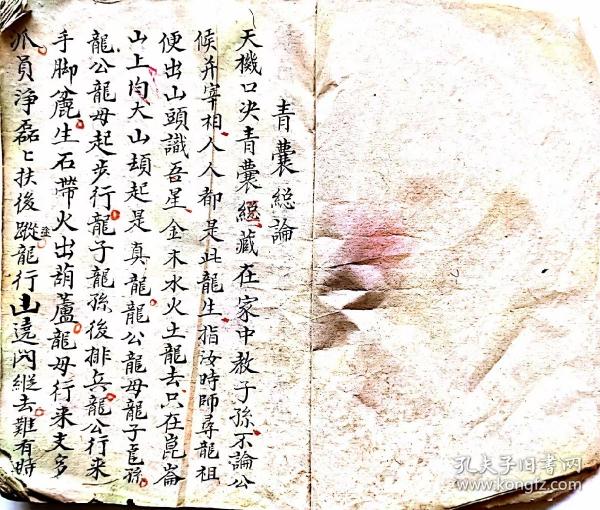 青囊総論
天機口决青囊総藏在家中教子孫不論公
候并宰相人人都是此龍生指汝時師尋龍祖
便出山頭識吾星金木水火土龍去只在崑崙
山上均大山頡起是真龍龍公龍母龍子龍孫
龍公龍母起步行龍子龍孫後排兵龍公行来
手脚麄生石帶火出葫蘆龍母行来支多
爪員淨磊匕扶後蹤龍行山遶閃縱去難有時
孔夫子旧书网
www.kongfz.com